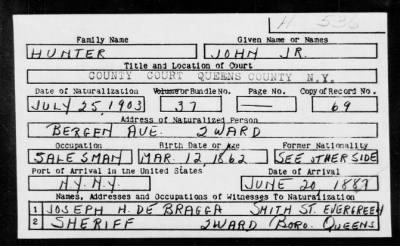 H 536
Family Name Given Name or Names
HUNTER JOHN JR.
Title and Location of Court
COUNTY COURT QUEENS COUNTY N.Y.
Date of Naturalization Volume or Bundle No. Page No. Copy of Record No.
JULY 25, 1903 37 — 69
Address of Naturalized Person
BERGEN AVE. 2 WARD
Occupation Birth Date or Age Former Nationality
SALESMAN MAR. 12, 1862 SEE OTHER SIDE
Port of Arrival in the United States Date of Arrival
N.Y. N.Y. JUNE 20, 1887
Names, Addresses and Occupations of Witnesses To Naturalization
1 JOSEPH H. DE BRAGGA SMITH ST. EVERGREEN
2 SHERIFF 2 WARD BORO. QUEENS